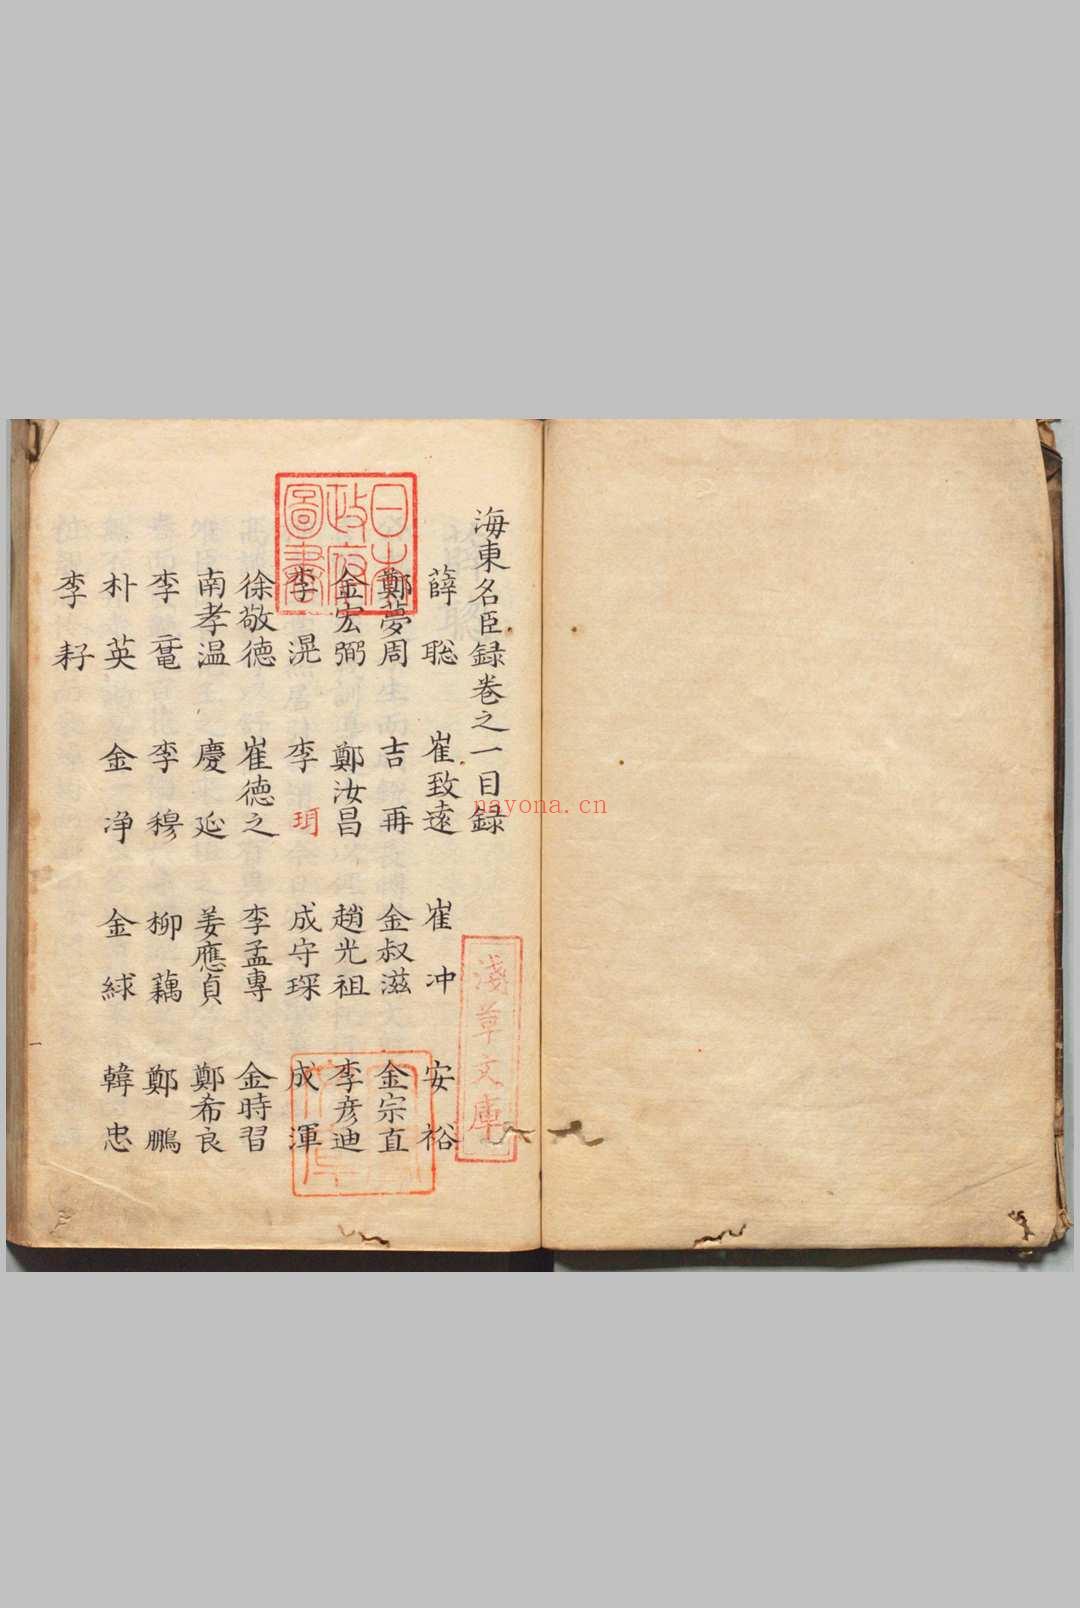 海東名臣錄卷之一目錄
薛聡 崔致遠 崔冲 安裕
鄭夢周 吉再 金叔滋 金宗直
金宏弼 鄭汝昌 趙光祖 李彦迪
李滉 李珥 成守琛 成渾
徐敬德 崔德之 李孟專 金時習
南孝温 慶延 姜應貞 鄭希良
李黿 李穆 柳藕 鄭鵬
朴英 金净 金絿 韓忠
李耔
日本政府圖書
淺草文庫
nayona.cn